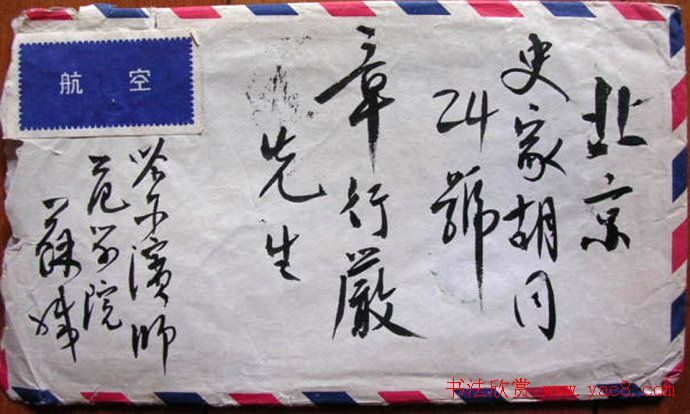 航空
北京
史家胡同
24號
章行嚴
先生
哈尔濱师
范学院
蘇
书法欣赏 www.yac8.com